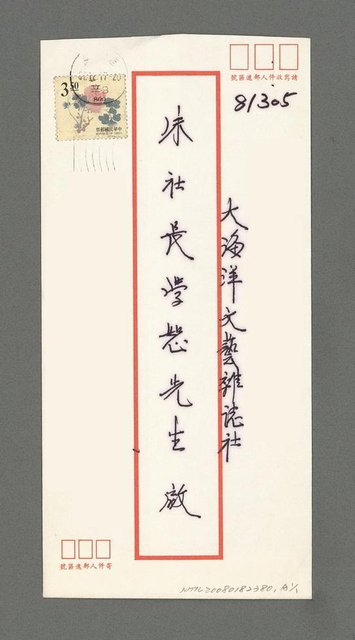 請寫收件人郵遞區號
81305
大海洋文藝雜誌社
朱社長學恕先生啟
3.50
中華民國郵票
寄件人郵遞區號
NMTL20080182380, A 1/1